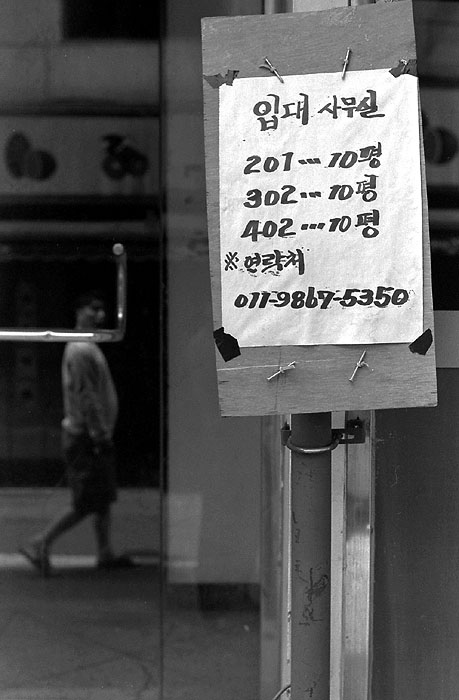 임대 사무실
201...10평
302...10평
402...10평
※연락처
011-9867-5350